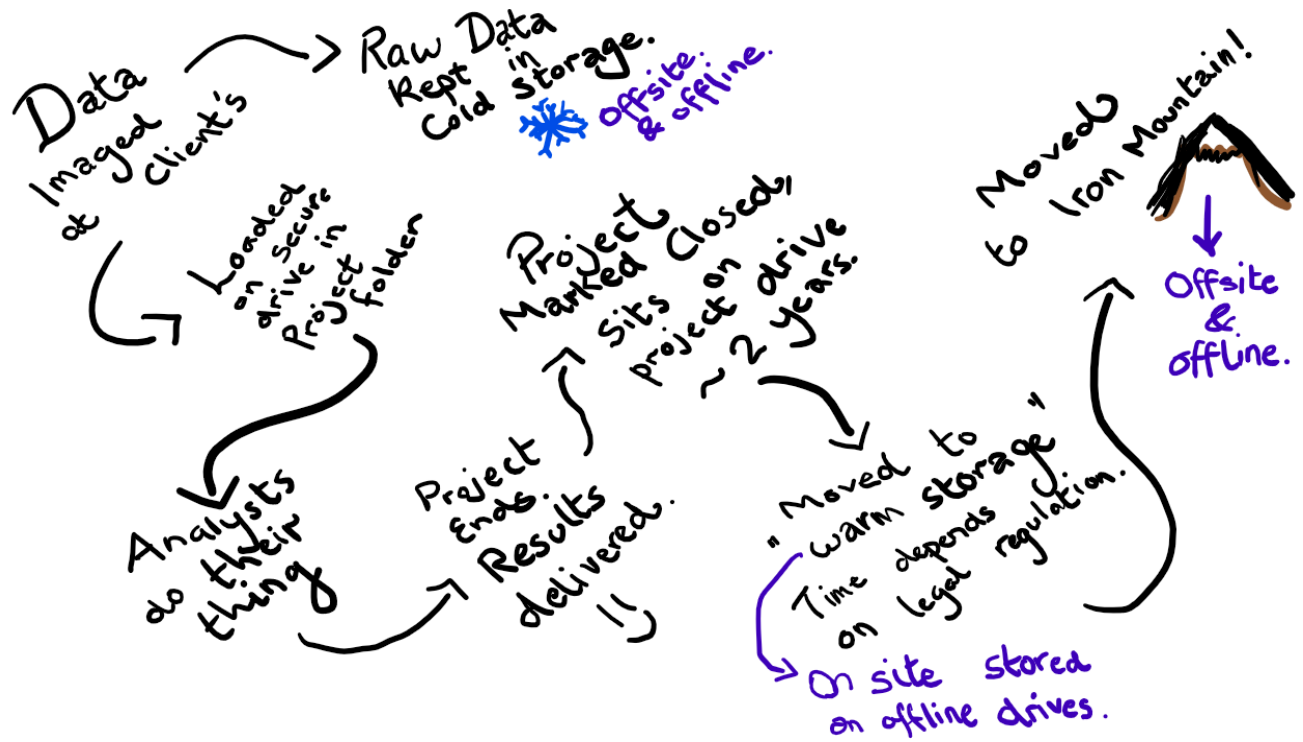 Data
Imaged
at Client's
Raw Data
Kept in
Cold Storage.
Offsite.
& offline.
Loaded
on secure
drive in
Project
folder
Analysts
do their
thing
Project
Ends.
Results
delivered.
Project
Marked Closed,
Sits on
project drive
~ 2 years.
"Moved to
warm storage"
Time depends
on legal regulation.
On site stored
on offline drives.
Moved
to Iron Mountain!
Offsite
&
offline.